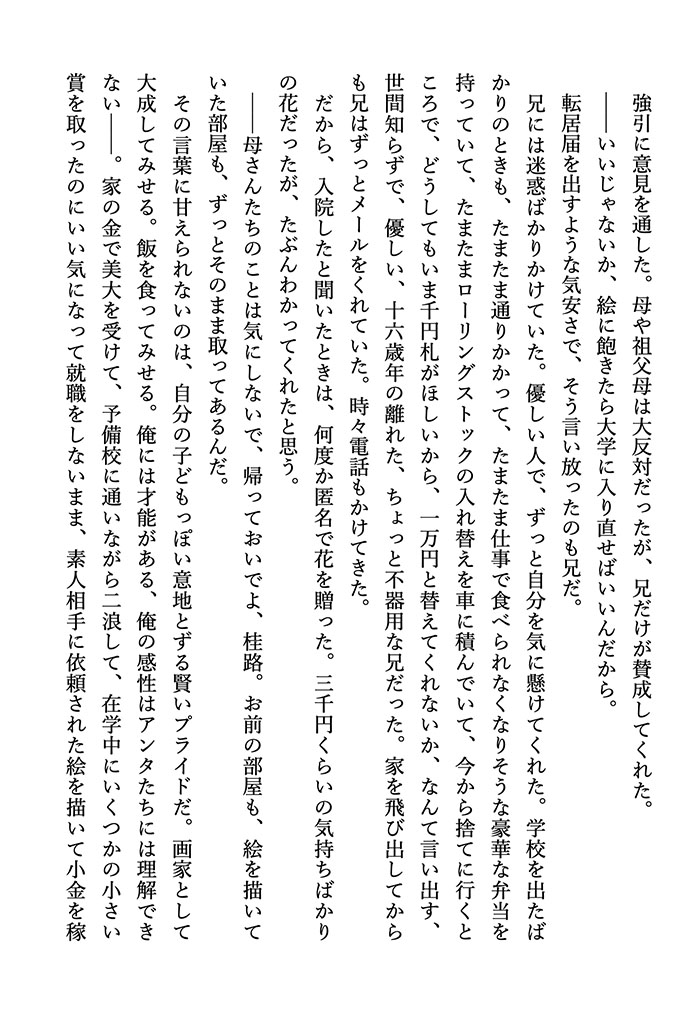 強引に意見を通した。母や祖父母は大反対だったが、兄だけが賛成してくれた。
――いいじゃないか、絵に飽きたら大学に入り直せばいいんだから。
転居届を出すような気安さで、そう言い放ったのも兄だ。
兄には迷惑ばかりかけていた。優しい人で、ずっと自分を気に懸けてくれた。学校を出たば
かりのときも、たまたま通りかかって、たまたま仕事で食べられなくなりそうな豪華な弁当を
持っていて、たまたまローリングストックの入れ替えを車に積んでいて、今から捨てに行くと
ころで、どうしてもいま千円札がほしいから、一万円と替えてくれないか、なんて言い出す、
世間知らずで、優しい、十六歳年の離れた、ちょっと不器用な兄だった。家を飛び出してから
も兄はずっとメールをくれていた。時々電話もかけてきた。
だから、入院したと聞いたときは、何度か匿名で花を贈った。三千円くらいの気持ちばかり
の花だったが、たぶんわかってくれたと思う。
――母さんたちのことは気にしないで、帰っておいでよ、桂路。お前の部屋も、絵を描いて
いた部屋も、ずっとそのまま取ってあるんだ。
その言葉に甘えられないのは、自分の子どもっぽい意地とずる賢いプライドだ。画家として
大成してみせる。飯を食ってみせる。俺には才能がある、俺の感性はアンタたちには理解でき
ない――。家の金で美大を受けて、予備校に通いながら二浪して、在学中にいくつかの小さい
賞を取ったのにいい気になって就職をしないまま、素人相手に依頼された絵を描いて小金を稼